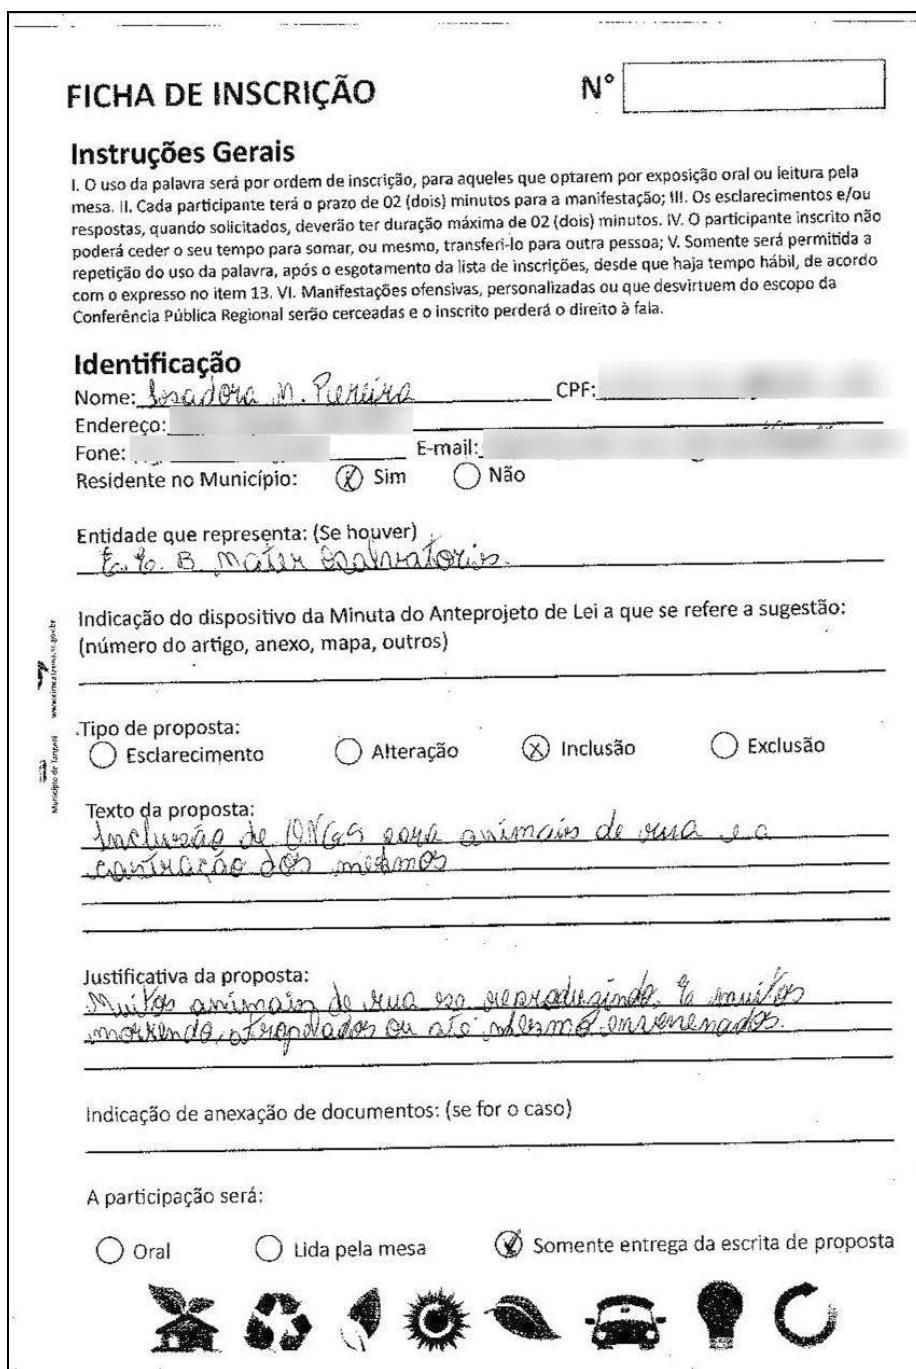 FICHA DE INSCRIÇÃO
N°
Instruções Gerais
I. O uso da palavra será por ordem de inscrição, para aqueles que optarem por exposição oral ou leitura pela
mesa. II. Cada participante terá o prazo de 02 (dois) minutos para a manifestação; III. Os esclarecimentos e/ou
respostas, quando solicitados, deverão ter duração máxima de 02 (dois) minutos. IV. O participante inscrito não
poderá ceder o seu tempo para somar, ou mesmo, transferi-lo para outra pessoa; V. Somente será permitida a
repetição do uso da palavra, após o esgotamento da lista de inscrições, desde que haja tempo hábil, de acordo
com o expresso no item 13. VI. Manifestações ofensivas, personalizadas ou que desvirtuem do escopo da
Conferência Pública Regional serão cerceadas e o inscrito perderá o direito à fala.
Identificação
Nome: Isadora M. Pereira CPF:
Endereço:
Fone: E-mail:
Residente no Município: (X) Sim Não
Entidade que representa: (Se houver)
E. E. B Mater Salvatoris.
Indicação do dispositivo da Minuta do Anteprojeto de Lei a que se refere a sugestão:
(número do artigo, anexo, mapa, outros)
Tipo de proposta:
Esclarecimento Alteração (X) Inclusão Exclusão
Texto da proposta:
Inclusão de ONGS para animais de rua e a
castração dos mesmos
Justificativa da proposta:
Muitos animais de rua se reproduzindo. E muitos
morrendo, atropelados ou até mesmo envenenados.
Indicação de anexação de documentos: (se for o caso)
A participação será:
Oral Lida pela mesa (X) Somente entrega da escrita de proposta
Município de Tangará